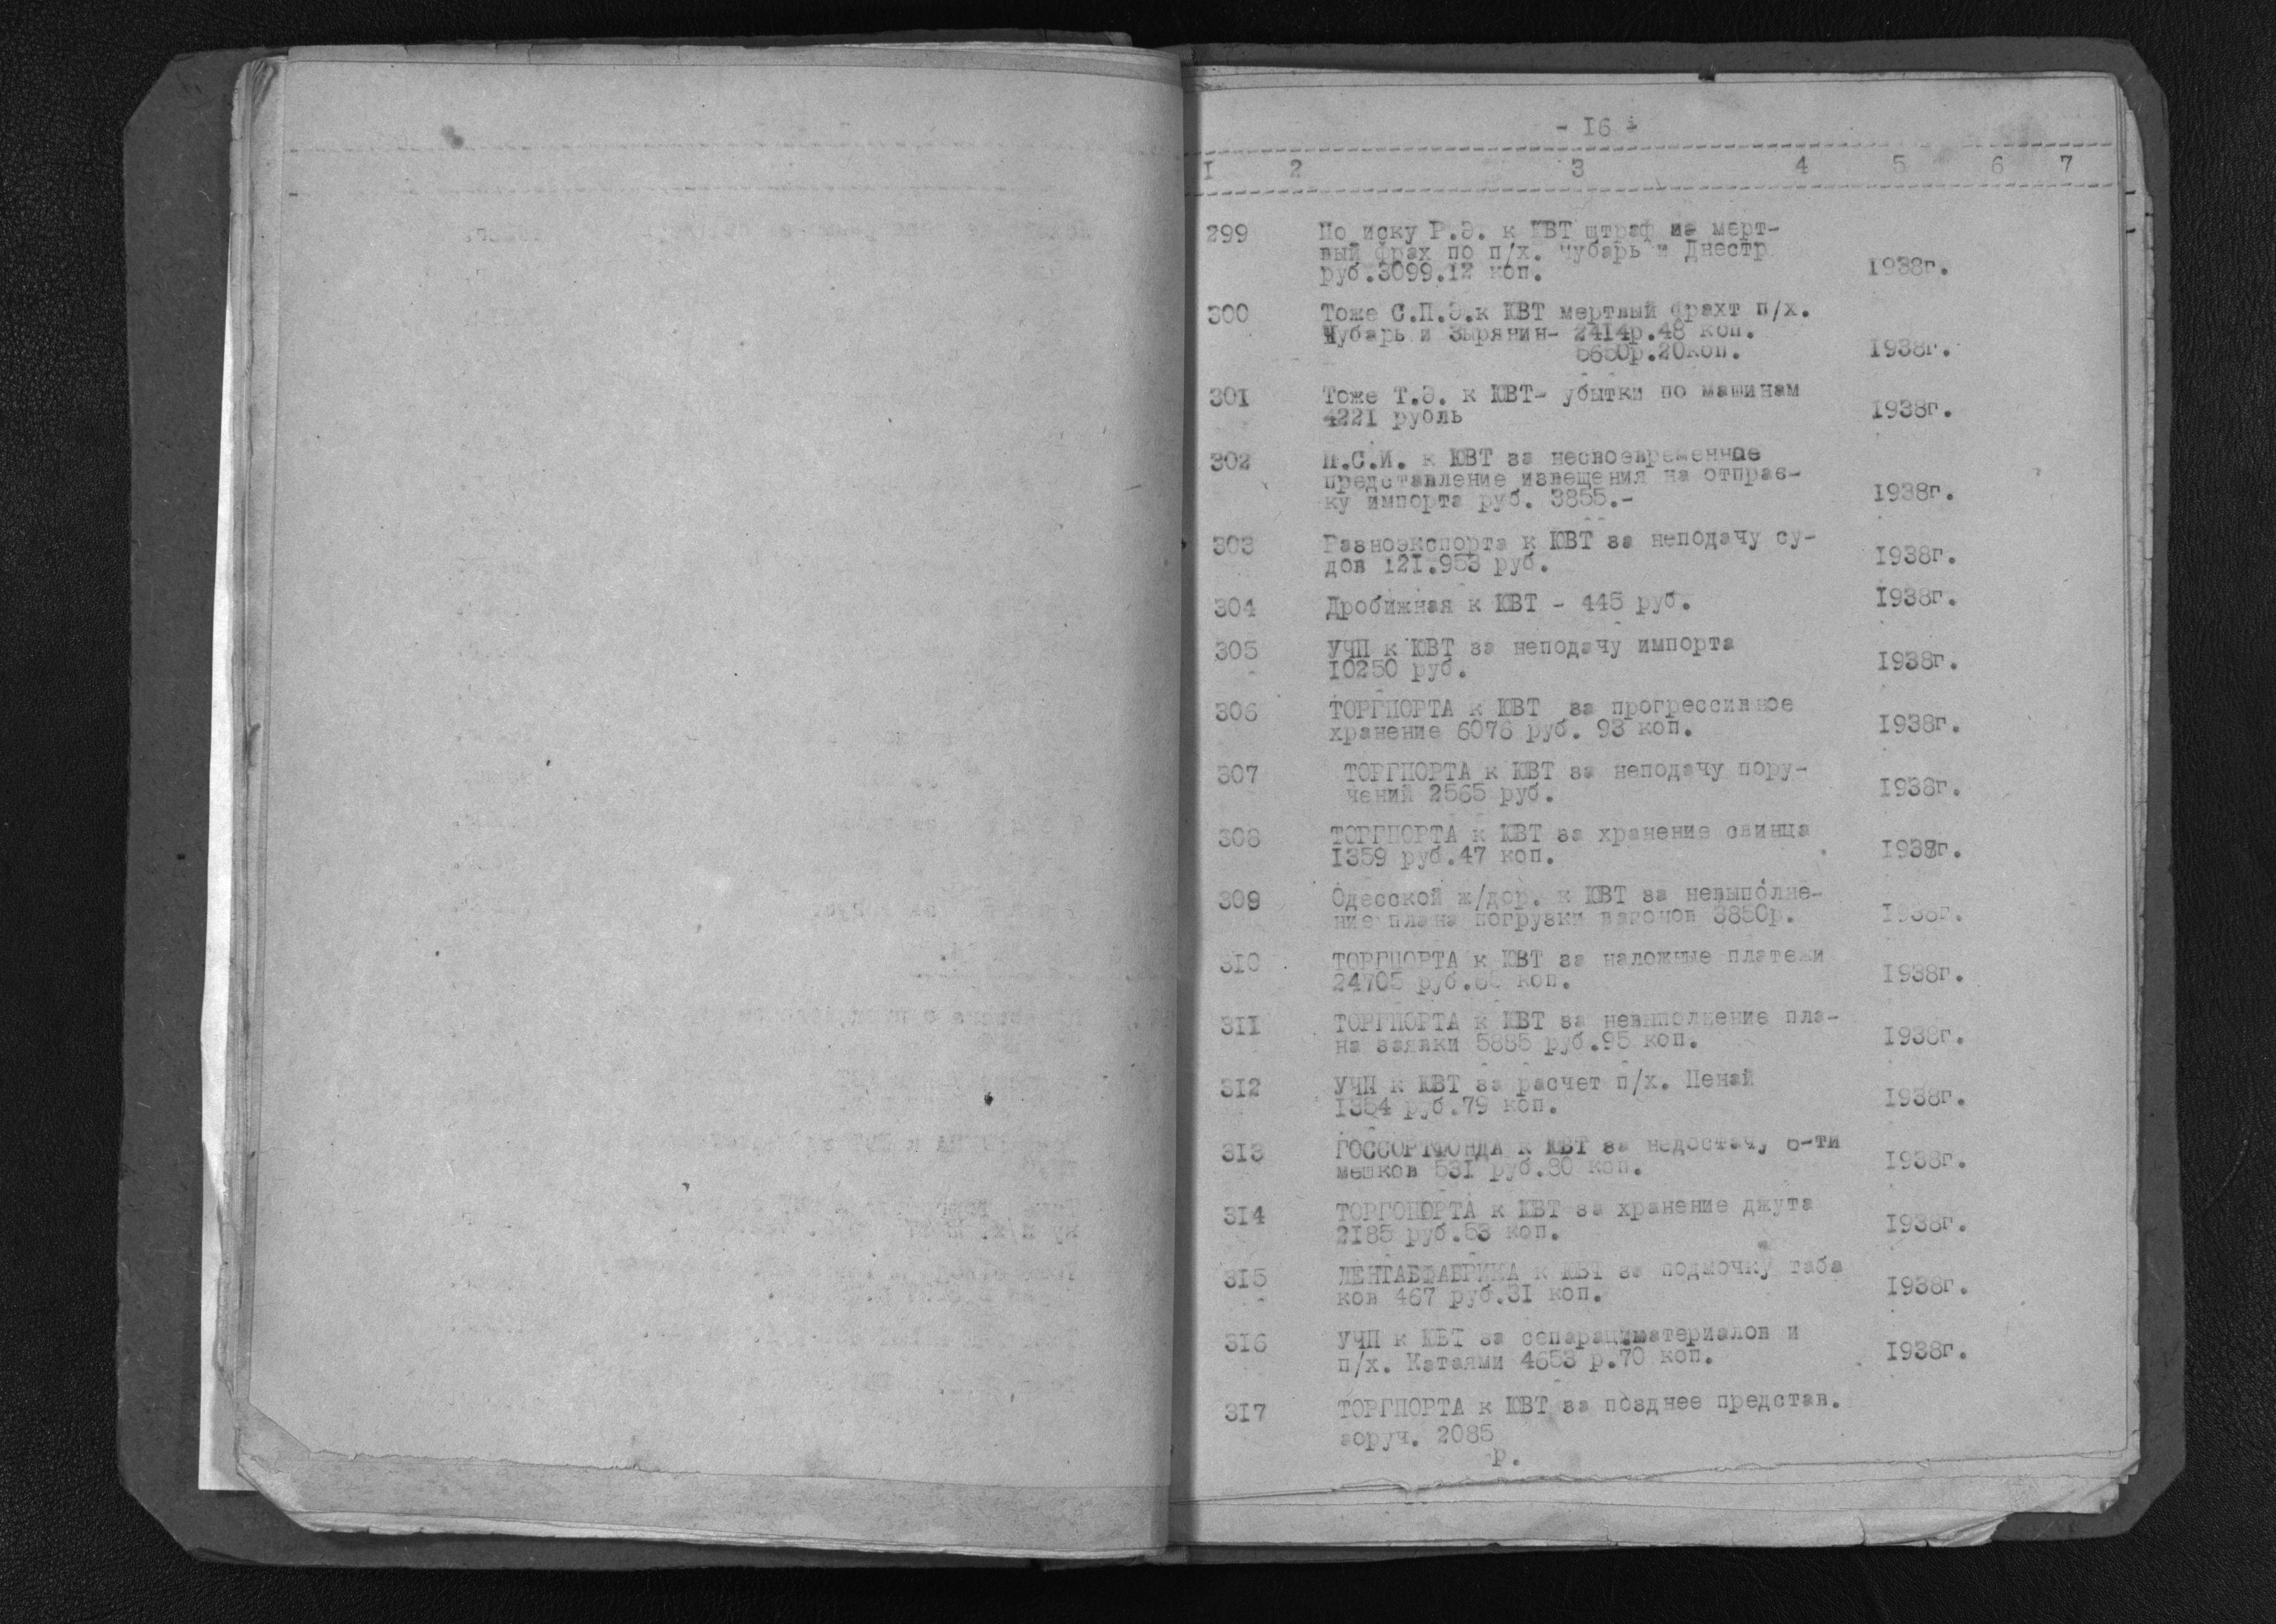 - 16 -
1 2 3 4 5 6 7
299 По иску Р.Э. к ЮВТ штраф на мерт-
вый фрах по п/х. Чубарь и Днестр
руб.3099.12 коп. 1938г.
300 Тоже С.П.Э.к ЮВТ мертвый фрахт п/х.
Чубарь и Зырянин- 2414р.48 коп.
5650р.20коп. 1938г.
301 Тоже Т.Э. к ЮВТ- убытки по машинам
4221 рубль 1938г.
302 П.С.И. к ЮВТ за несвоевременные
представление извещения на отправ-
ку импорта руб. 3855.- 1938г.
303 Разноэкспорта к ЮВТ за неподачу су-
дов 121.953 руб. 1938г.
304 Дробижная к ЮВТ - 445 руб. 1938г.
305 УЧП к ЮВТ за неподачу импорта
10250 руб. 1938г.
306 ТОРГПОРТА к ЮВТ за прогрессивное
хранение 6076 руб. 93 коп. 1938г.
307 ТОРГПОРТА к ЮВТ за неподачу пору-
чений 2565 руб. 1938г.
308 ТОРГПОРТА к ЮВТ за хранение свинца
1359 руб.47 коп. 1938г.
309 Одесской ж/дор. к ЮВТ за невыполне-
ние плана погрузки вагонов 3850р. 1938г.
310 ТОРГПОРТА к ЮВТ за наложные платежи
24705 руб. коп. 1938г.
311 ТОРГПОРТА к ЮВТ за невыполнение пла-
на заявки 5885 руб.95 коп. 1938г.
312 УЧП к ЮВТ за расчет п/х. Пенай
1354 руб.79 коп. 1938г.
313 ГОССОРТФОНДА к ЮВТ за недостачу 6-ти
мешков 531 руб.80 коп. 1938г.
314 ТОРГОПОРТА к ЮВТ за хранение джута
2185 руб.53 коп. 1938г.
315 ЛЕНТАБФАБРИКА к ЮВТ за подмочку таба
ков 467 руб.31 коп. 1938г.
316 УЧП к ЮВТ за сепарациматериалов и
п/х. Катаями 4653 р.70 коп. 1938г.
317 ТОРГПОРТА к ЮВТ за позднее представ.
поруч. 2085
р.